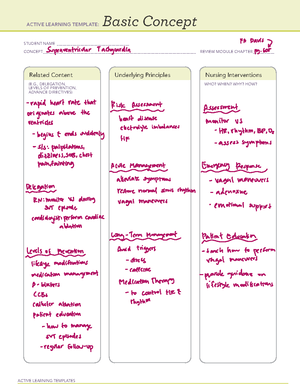 ACTIVE LEARNING TEMPLATE: Basic Concept
STUDENT NAME
CONCEPT Supraventricular Tachycardia
FA Davis
REVIEW MODULE CHAPTER pg.
Related Content
(E.G., DELEGATION,
LEVELS OF PREVENTION,
ADVANCE DIRECTIVES)
- rapid heart rate that
originates above the
ventricles
- begins & ends suddenly
- S/s: palpitations,
dizziness, SOB, chest
pain, fainting
Delegation
RN: monitor VS during
SVT episodes,
cardiologist: perform cardiac
ablation
Levels of Prevention
lifestyle modifications
medication management
B-blockers
CCBs
catheter ablation
patient education
- how to manage
SVT episodes
- regular follow-up
Underlying Principles
Risk Assessment
heart disease
electrolyte imbalances
Acute Management
alleviate symptoms
restore normal sinus rhythm
vagal maneuvers
Long-Term Management
Avoid triggers
- stress
- caffeine
Medication Therapy
- to control HR &
rhythm
Nursing Interventions
WHO? WHEN? WHY? HOW?
Assessment
monitor VS
- HR, rhythm, BP, O2
- assess symptoms
Emergency Response
- vagal maneuvers
- adenosine
- emotional support
Patient Education
- teach how to perform
vagal maneuvers
- provide guidance on
lifestyle modifications
ACTIVE LEARNING TEMPLATES